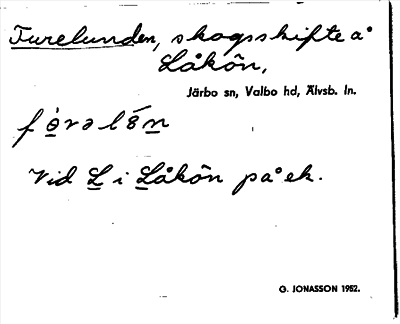 Furelunden, skogsskifte å
Låkön,
Järbo sn, Valbo hd, Älvsb. ln.
Vid L i Låkön på ek.
G. JONASSON 1952.